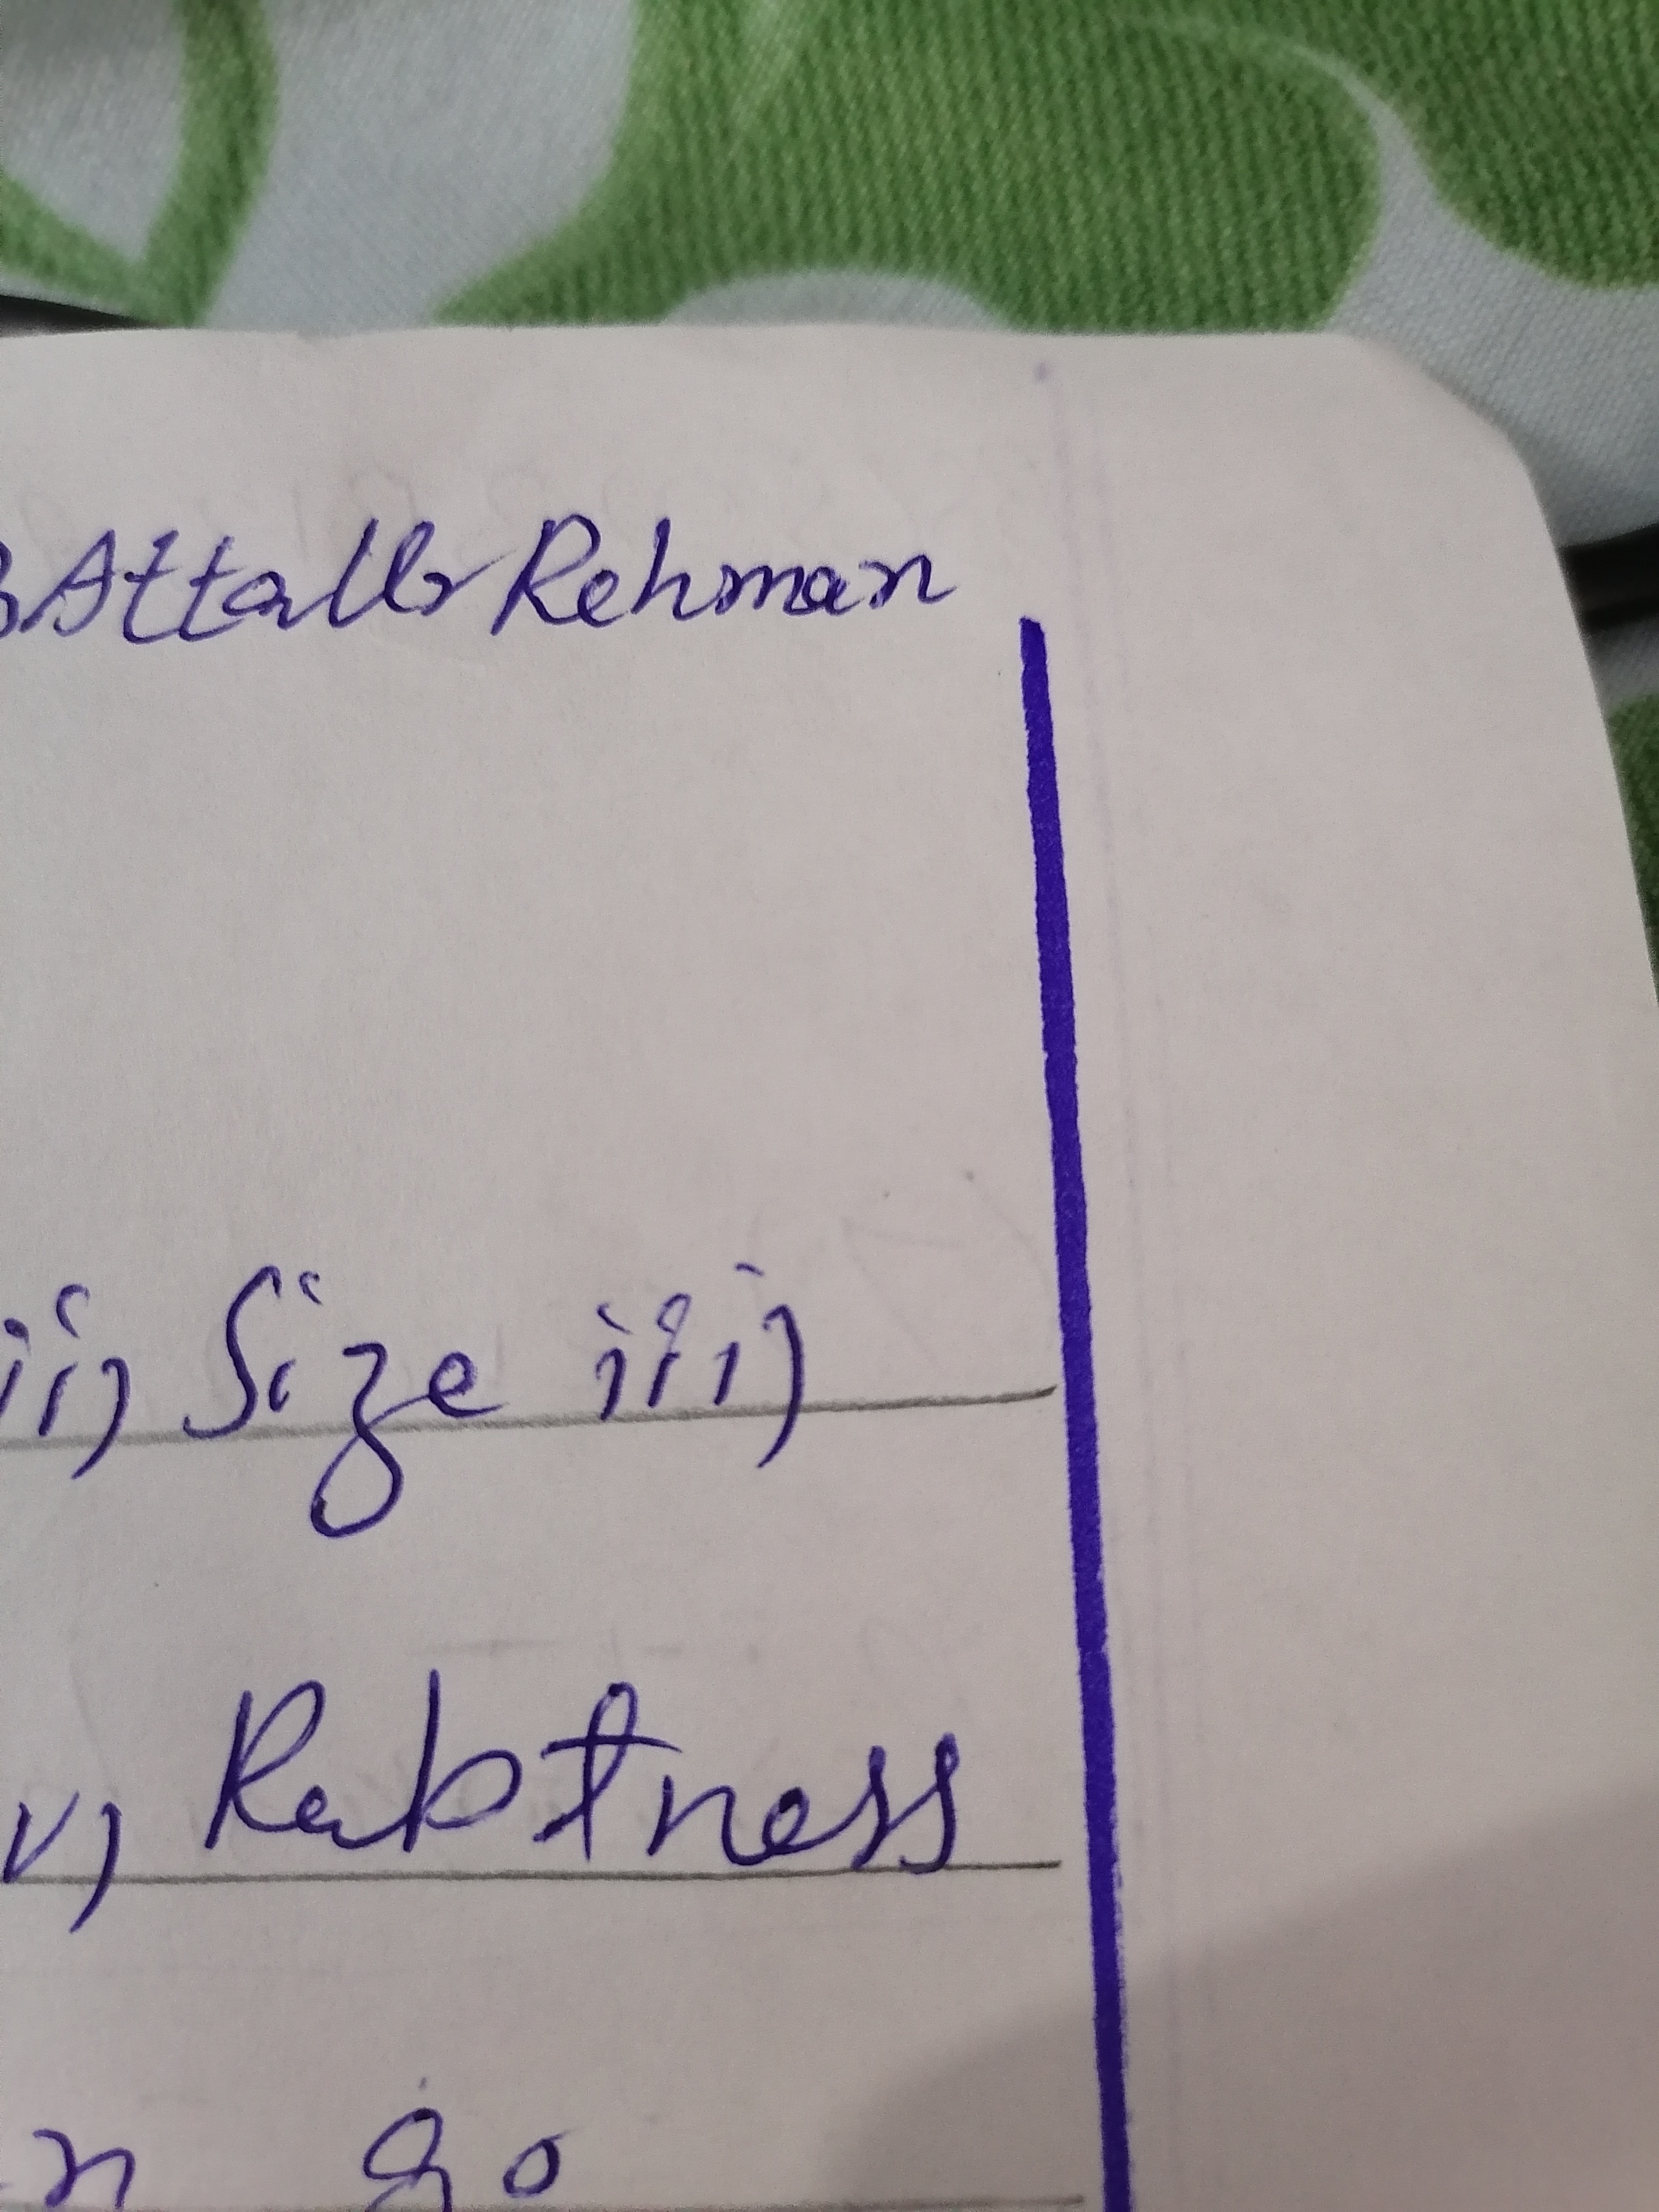 Rehman
ii) Size iii)
v) Rabtness
n go